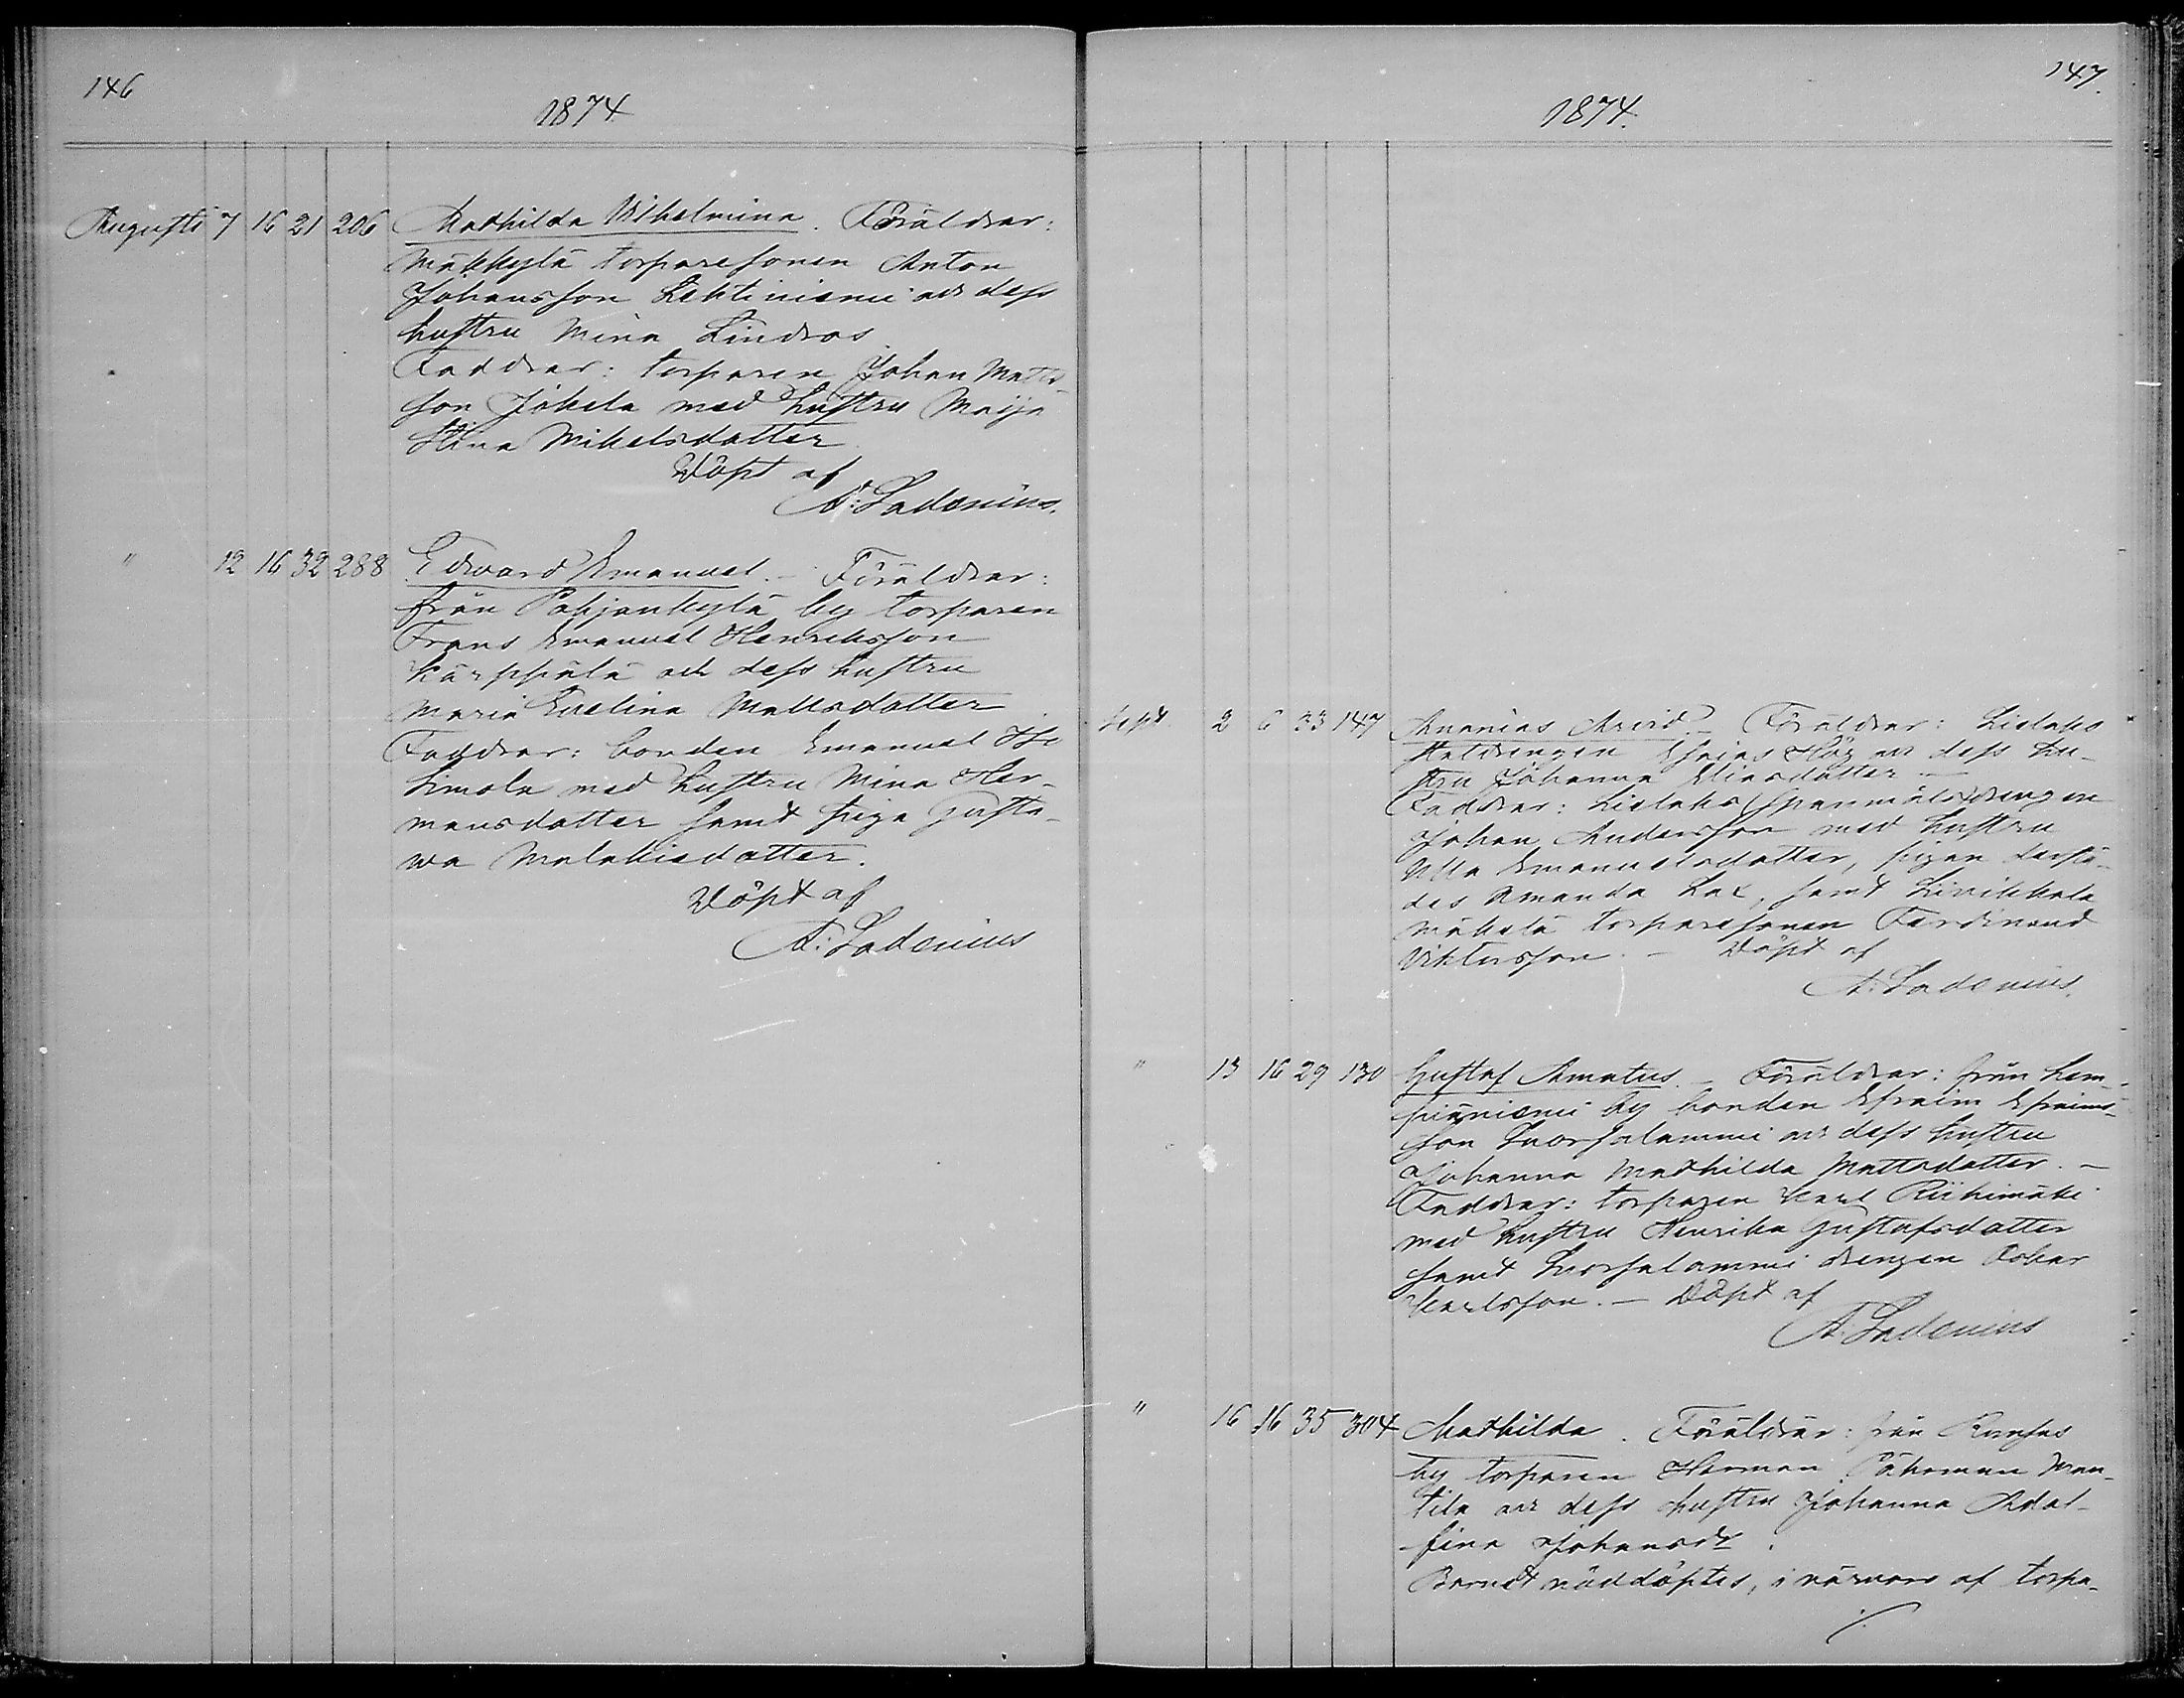 146
1874
Augusti 7 16 21 206 Mathilda Wilhelmina. Föräldrar:
Mäkkylä torparesonen Anton
Johansson Lehtiniemi och dess
hustru Mina Lindros
Faddrar: torparen Johan Matts-
son Jokela med hustru Maija
Stina Mikelsdotter
Döpt af
A: Ladenius.
" 12 16 32 288 Edvard Emanuel. – Föräldrar:
från Pohjankylä by torparen
Frans Emanuel Henriksson
Kärppälä och dess hustru
Maria Evelina Mattsdotter
Faddrar: bonden Emanuel
med hustru Mina Her-
mansdotter samt piga Gusta-
wa Malakiasdotter.
Döpt af
A: Ladenius
147.
1874.
Sept 2 6 33 147 Ananias Arvid. – Föräldrar: Lielaks
Stalldrengen Esaias Hög och dess hu-
stru Johanna Eliasdotter –
Faddrar: Lielaks spanmålsdrengen
Johan Andersson med hustru
Ulla Emanuelsdotter, pigan dersta-
des Amanda Lax, samt
Mäkelä torparesonen Ferdinand
Viktorsson. – Döpt af
A: Ladenius.
" 13 16 29 130 Gustaf Amatus. – Föräldrar: från Lem-
piäniemi by bonden Efraim Efraims-
son och dess hustru
Johanna Mathilda Mattsdotter. –
Faddrar: torparen Karl Riihimäki
med hustru Henrika Gustafsdotter
samt drengen Oskar
Karlsson. – Döpt af
A: Ladenius
" 16 16 35 304 Mathilda. Föräldrar: från
by torparen Herman Man-
tila och dess hustru Johanna Adol-
fina Johansdr.
Barnet nöddöptes, i närvaro af torpa-
./.